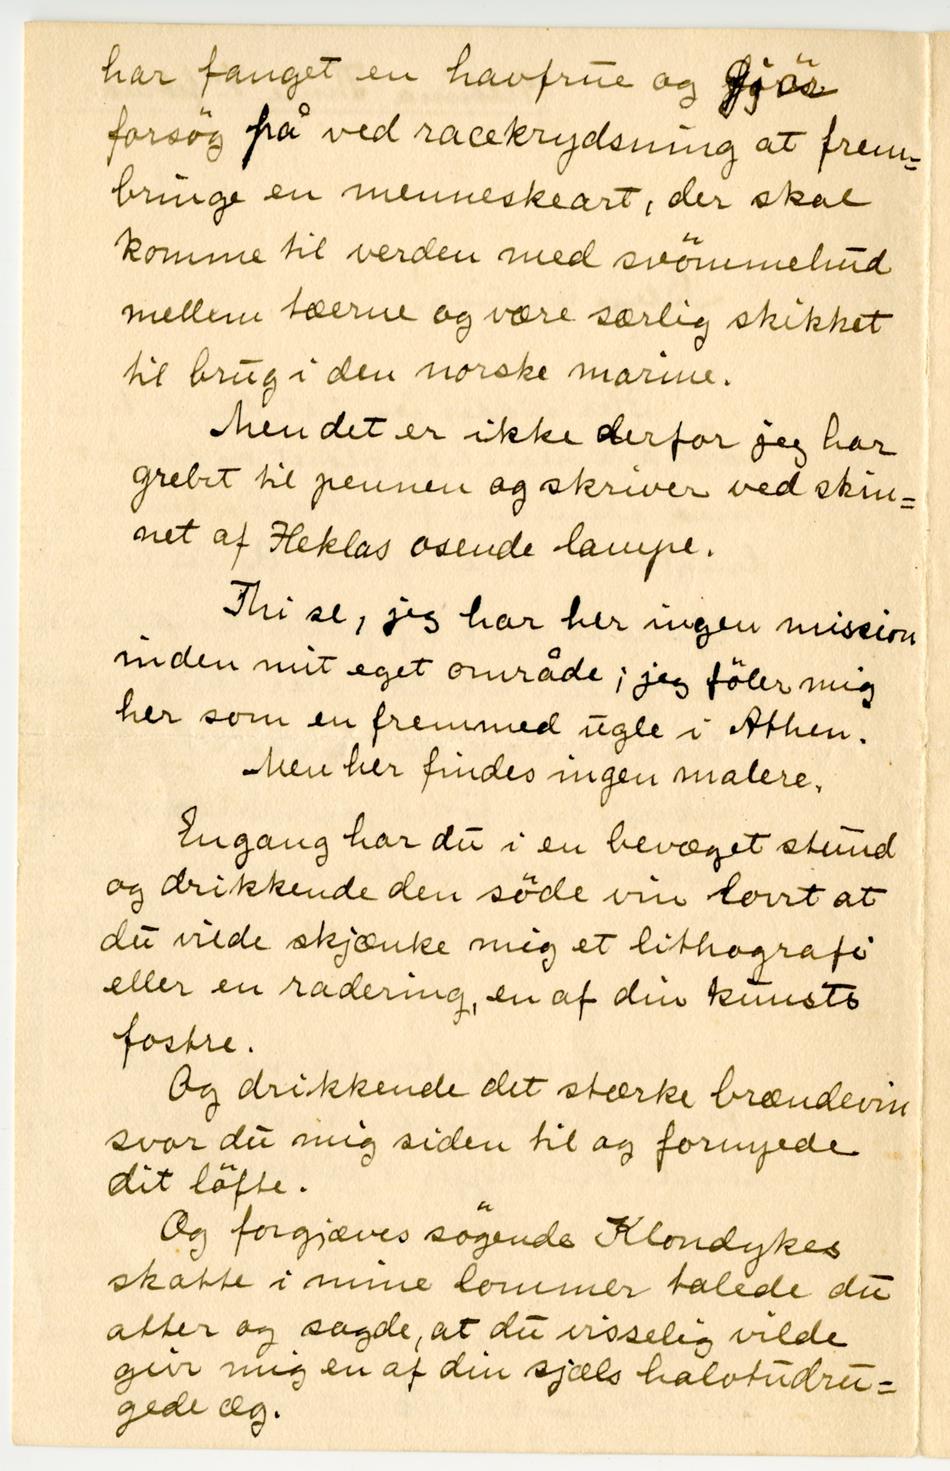 har fanget en havfrue og gjör
forsög på ved racekrydsning at frem=
bringe en menneskeart, der skal
komme til verden med svömmehud
mellem tæerne og være særlig skikket
til brug i den norske marine.
Men det er ikke derfor jeg har
grebet til pennen og skriver ved skin=
net af Heklas osende lampe.
Thi se, jeg har her ingen mission
inden mit eget område; jeg föler mig
her som en fremmed ugle i Athen.
Men her findes ingen malere.
Engang har du i en bevæget stund
og drikkende den söde vin lovet at
du vilde skjænke mig et lithografi
eller en radering, en af din kunsts
fostre.
Og drikkende det stærke brændevin
svor du mig siden til og fornyede
dit löfte.
Og forgjæves sögende Klondykes
skatte i mine lommer talede du
atter og sagde, at du visselig vilde
givr mig en af din sjæls halvtudru=
gede æg.